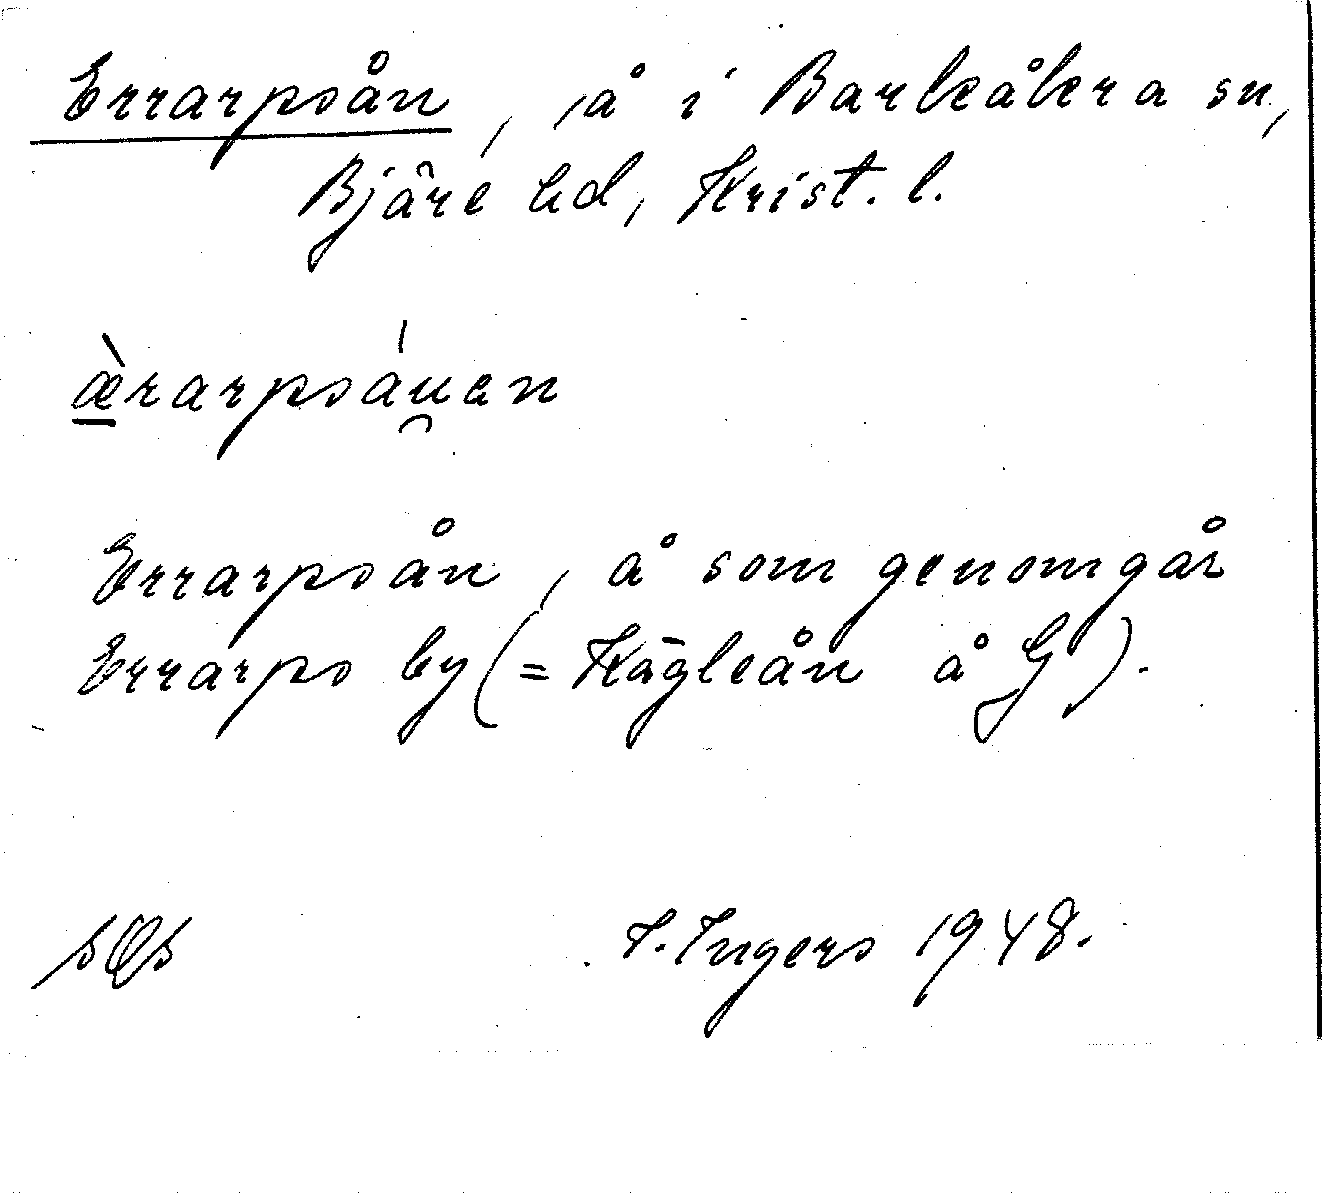 Errarpsån, å i Barkåkra sn,
Bjäre hd, Krist. l.
æ̀rarpsáu̯en
Errarpsån, å som genomgår
Errarps by (= Kägleån å G).
I. Ingers 1948.